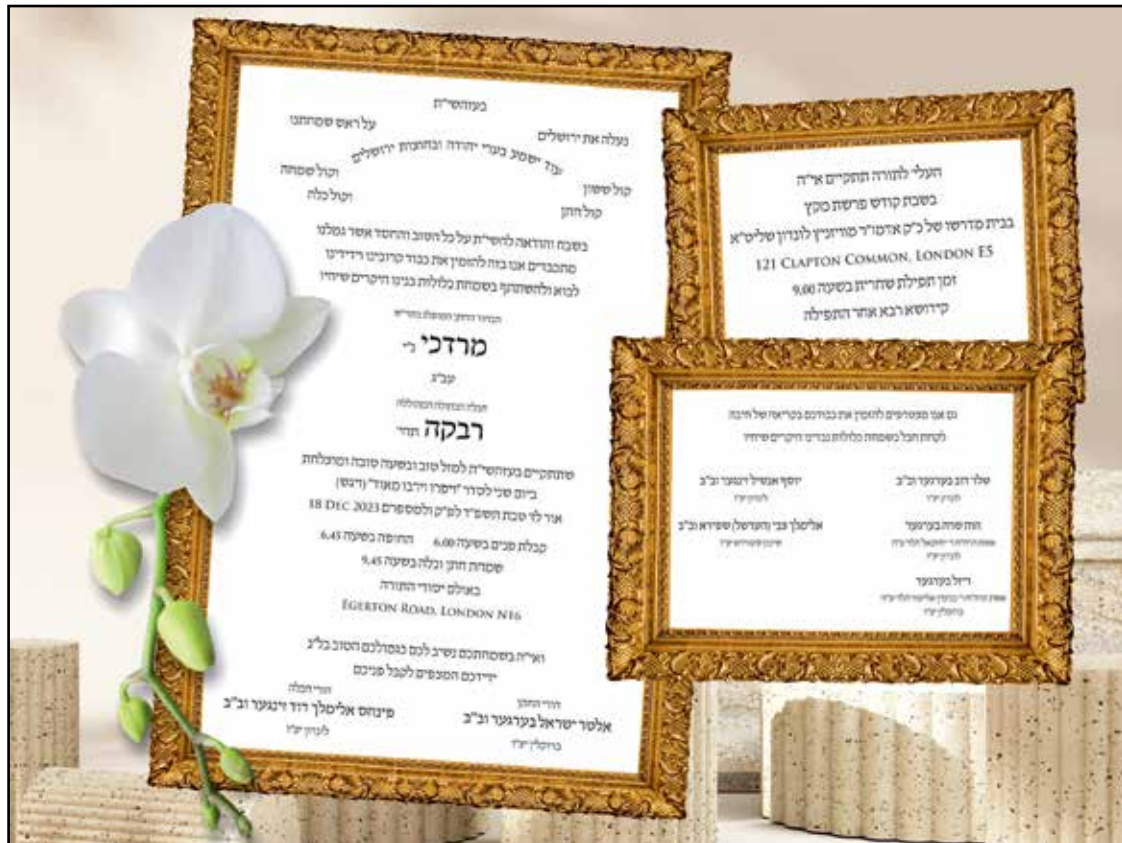 בעזהשי"ת
נעלה את ירושלים
על ראש שמחתנו
עוד ישמע בערי יהודה ובחוצות ירושלים
קול ששון
וקול שמחה
קול חתן
וקול כלה
בשבח והודאה להשי"ת על כל הטוב והחסד אשר גמלנו
מתכבדים אנו בזה להזמין את כבוד קרובינו וידידינו
לבוא ולהשתתף בשמחת כלולות בנינו היקרים שיחיו
מרדכי ני"
עב"ג
רבקה תחי'
שתתקיים בעזהשי"ת למזל טוב ובשעה טובה ומוצלחת
ביום שני לסדר "ויפרו וירבו מאוד" (ויגש)
אור לז' טבת תשפ"ד לפ"ק ולמספרם 18 DEC 2023
קבלת פנים בשעה 6.00 החופה בשעה 6.45
שמחת חתן וכלה בשעה 9.45
באולם יסודי התורה
EGERTON ROAD, LONDON N16
ואי"ה בשמחתכם נשיב לכם כגמולכם הטוב בל"נ
ידידכם המצפים לקבל פניכם
הורי החתן
אלטר ישראל בערגער וב"ב
ברוקלין יע"ו
הורי הכלה
פינחס אלימלך דוד זינגער וב"ב
לונדון יע"ו
העלי' לתורה תתקיים אי"ה
בשבת קודש פרשת מקץ
בבית מדרשו של כ"ק אדמו"ר מוויזניץ לונדון שליט"א
121 CLAPTON COMMON, LONDON E5
זמן תפילת שחרית בשעה 9.00
קידושא רבא אחר התפילה
גם אנו מצטרפים להזמין את כבודכם בקריאה של חיבה
לקחת חבל בשמחת כלולות נכדינו היקרים שיחיו
שלו' דוב בערגער וב"ב
לונדון יע"ו
חוה שרה בערגער
לונדון יע"ו
רייזל בערגער
ברוקלין יע"ו
יוסף אנשיל זינגער וב"ב
לונדון יע"ו
אלימלך צבי (הערשל) שפירא וב"ב